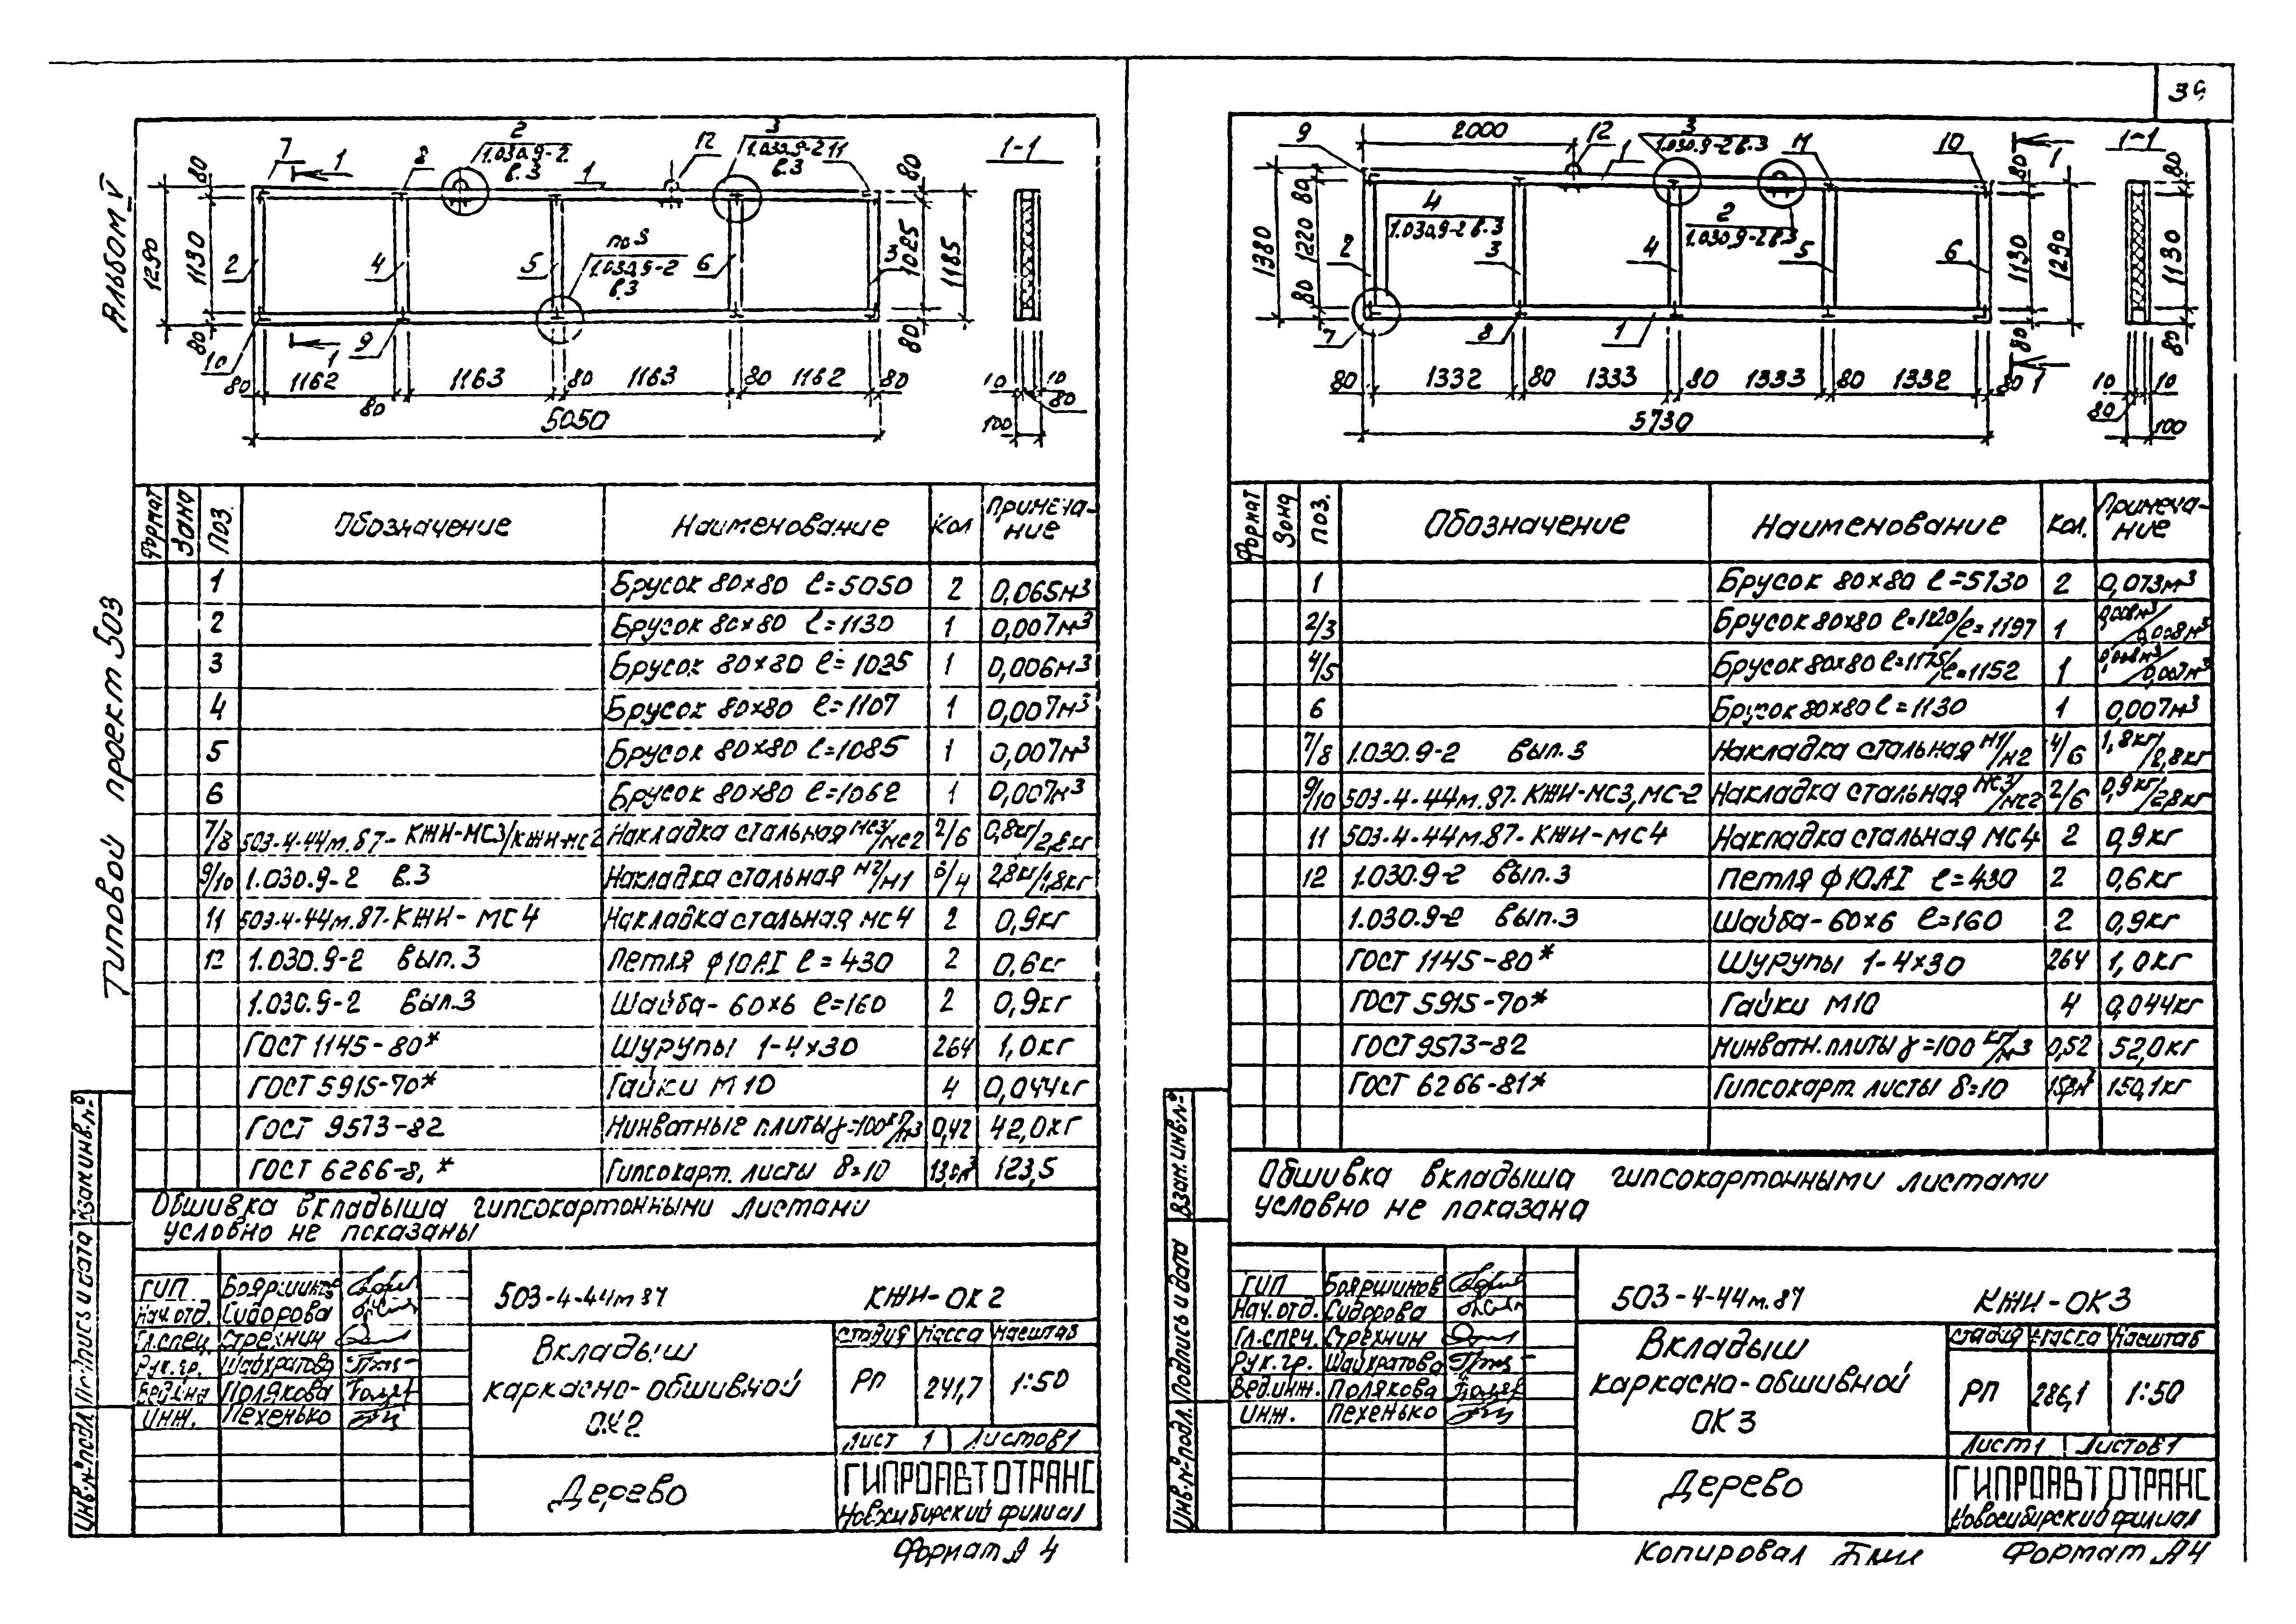 39
Альбом V
Типовой проект 503
7
1
8
2
1.030.9-2
в.3
1
12
3
1.030.9-2
в.3
11
1-1
80
1290
1130
80
2
4
5
по 5
1.030.9-2
в.3
6
3
80
1025
80
1185
10
1
9
80 1162 80 1163 80 1163 80 1162 80
5050
10 10
80
100
Формат Зона Поз. Обозначение Наименование Кол Примечание
1 Брусок 80х80 ℓ=5050 2 0,065м³
2 Брусок 80х80 ℓ=1130 1 0,007м³
3 Брусок 80х80 ℓ=1025 1 0,006м³
4 Брусок 80х80 ℓ=1107 1 0,007м³
5 Брусок 80х80 ℓ=1085 1 0,007м³
6 Брусок 80х80 ℓ=1062 1 0,007м³
7/8 503-4-44м.87- КЖИ-МС3/КЖИ-МС2 Накладка стальная МС3/МС2 2/6 0,8кг/2,8кг
9/10 1.030.9-2 в.3 Накладка стальная М2/М1 6/4 2,8кг/1,8кг
11 503-4-44м.87-КЖИ-МС4 Накладка стальная МС4 2 0,9кг
12 1.030.9-2 вып.3 Петля ф10АI ℓ=430 2 0,6кг
1.030.9-2 вып.3 Шайба-60х6 ℓ=160 2 0,9кг
ГОСТ 1145-80* Шурупы 1-4х30 264 1,0кг
ГОСТ 5915-70* Гайки М10 4 0,044кг
ГОСТ 9573-82 Минватные плиты γ=100кг/м3 0,42 42,0кг
ГОСТ 6266-8, * Гипсокарт. листы δ=10 13,0м² 123,5
Обшивка вкладыша гипсокартонными листами
условно не показаны
ГИП Бояршинов
Нач.отд. Сидорова
Гл.спец. Стрехнин
Рук.гр. Шайхратова
Вед.инж Полякова
Инж. Пехенько
503-4-44м 87 КЖИ-ОК2
Вкладыш
каркасно-обшивной
ОК2
Стадия Масса Масштаб
РП 241,7 1:50
Лист 1 Листов 1
Дерево
ГИПРОАВТОТРАНС
Новосибирский филиал
Формат А4
Инв.№ подл. Подпись и дата Взам.инв.№
9
2000
12
3
1.030.9-2 в.3
1
11
10
1
1-1
1380
80
1220
80
2
4
1.030.9-2 в.3
3
4
2
1.030.9-2 в.3
5
6
80
1130
80
1290
80
1130
80
7
8
1
1
80 1332 80 1333 80 1333 80 1332 80
5730
10 10
80
100
Формат Зона Поз. Обозначение Наименование Кол. Примечание
1 Брусок 80х80 ℓ=5730 2 0,073м³
2/3 Брусок 80х80 ℓ=1220/ℓ=1197 1 0,008м³/0,008м³
4/5 Брусок 80х80 ℓ=1175/ℓ=1152 1 0,008м³/0,007м³
6 Брусок 80х80 ℓ=1130 1 0,007м³
7/8 1.030.9-2 вып.3 Накладка стальная М1/М2 4/6 1,8кг/2,8кг
9/10 503-4-44м.87-КЖИ-МС3,МС-2 Накладка стальная МС3/МС2 2/6 0,9кг/2,8кг
11 503-4-44м.87-КЖИ-МС4 Накладка стальная МС4 2 0,9кг
12 1.030.9-2 вып.3 Петля ф10АI ℓ=430 2 0,6кг
1.030.9-2 вып.3 Шайба-60х6 ℓ=160 2 0,9кг
ГОСТ 1145-80* Шурупы 1-4х30 264 1,0кг
ГОСТ 5915-70* Гайки М10 4 0,044кг
ГОСТ 9573-82 Минватн.плиты γ=100 кг/м3 0,52 52,0кг
ГОСТ 6266-81* Гипсокарт. листы δ=10 150,1кг
Обшивка вкладыша гипсокартонными листами
условно не показана
ГИП Бояршинов
Нач.отд. Сидорова
Гл.спец. Стрехнин
Рук.гр. Шайхратова
Вед.инж. Полякова
Инж. Пехенько
503-4-44м.87 КЖИ-ОК3
Вкладыш
каркасно-обшивной
ОК3
Стадия Масса Масштаб
РП 286,1 1:50
Лист 1 Листов 1
Дерево
ГИПРОАВТОТРАНС
Новосибирский филиал
Копировал Формат А4
Инв.№ подл. Подпись и дата Взам.инв.№